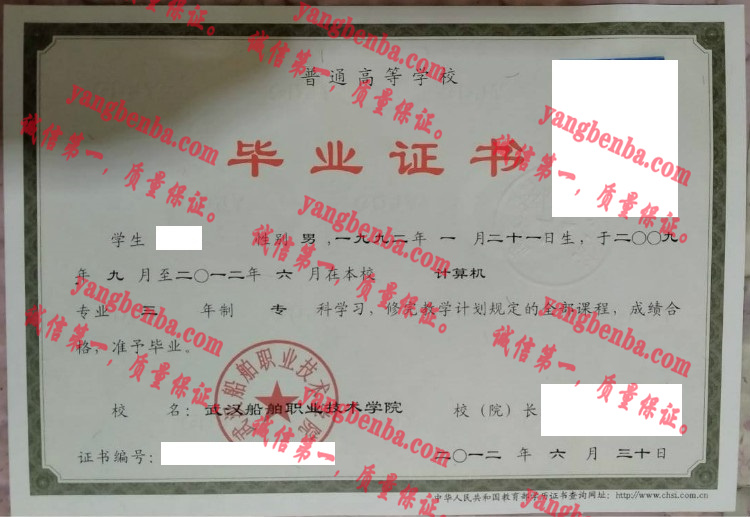 普通高等学校
毕业证书
学生 性别 男 ,一九九二年 一 月二十一日生,于二〇〇九
年 九 月至二〇一二年 六 月在本校 计算机
专业 三 年制 专 科学习,修完教学计划规定的全部课程,成绩合
格,准予毕业。
校 名: 武汉船舶职业技术学院 校(院)长
证书编号: 二〇一二 年 六 月 三十日
中华人民共和国教育部学历证书查询网址: http://www.chsi.com.cn
武汉船舶职业技术学院
yangbenba.com
诚信第一,质量保证。
yangbenba.com
诚信第一,质量保证。
yangbenba.com
诚信第一,质量保证。
yangbenba.com
诚信第一,质量保证。
yangbenba.com
诚信第一,质量保证。
yangbenba.com
诚信第一,质量保证。
yangbenba.com
诚信第一,质量保证。
yangbenba.com
诚信第一,质量保证。